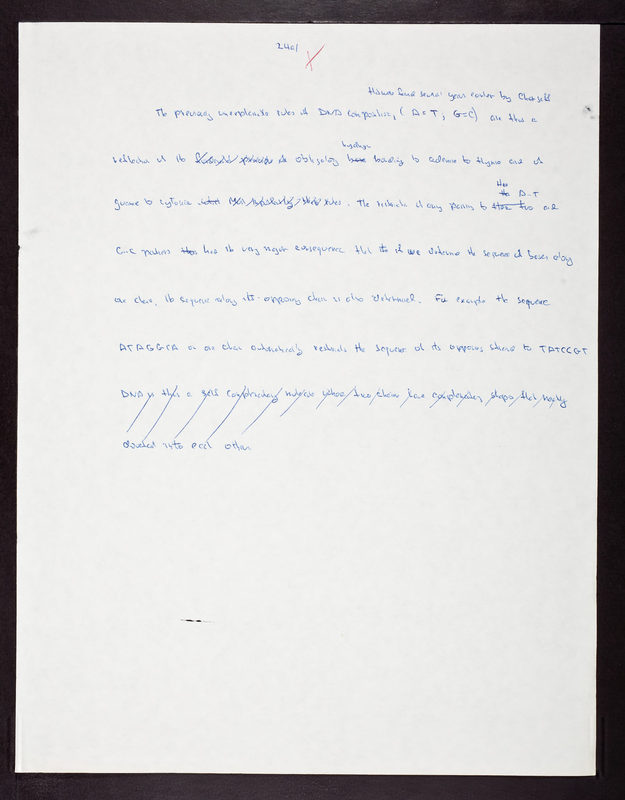 24a/
found several years earlier by Chargaff
The previously unexplained rules of DNA composition, (A=T, G=C) are thus a
hydrogen
reflection of the obligatory bond bonding to adenine to thymine and of
guanine to cytosine rules. The restriction of any pairing to the two and
the A-T
G-C pairs has the very major consequence that if we determine the sequence of bases along
one chain, the sequence along its opposing chain is also determined. For example the sequence
ATAGGCA on one chain automatically restricts the sequence of its opposing strand to TATCCGT
DNA is thus a self complementary molecule whose two chains have complementary shapes that
into each other